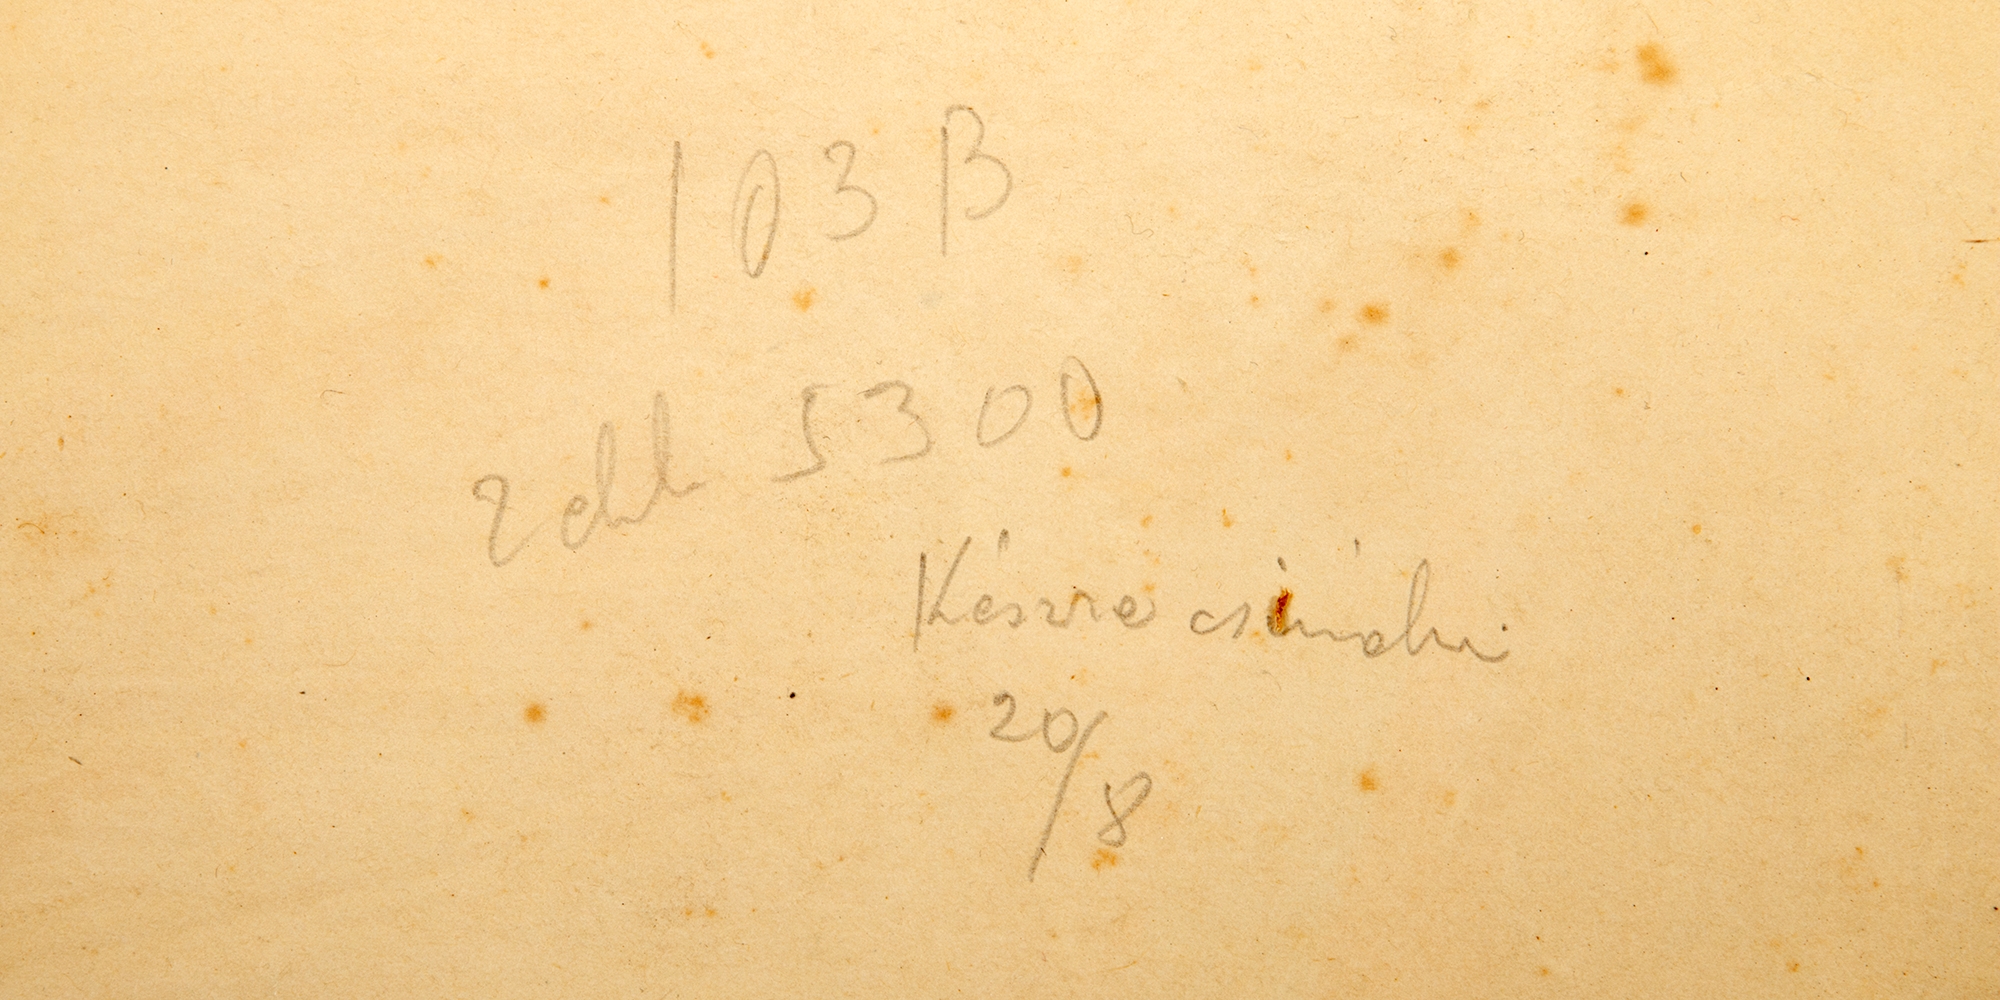 103 B
5300
Készre csinálni
20/8